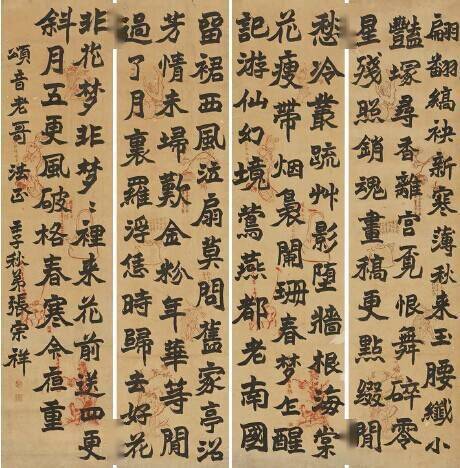 翩翻縞袂新寒薄秋來玉腰纖小
豔塚尋香離宮覓恨舞碎零
星殘照銷魂畫稿更點綴閒
愁冷叢疏艸影墮牆根海棠
花瘦帶烟裊闌珊春夢乍醒
記游仙幻境鶯燕都老南國
留裙西風泣扇莫問舊家亭沼
芳情未埽歎金粉年華等閒
過了月裏羅浮恁時歸去好花
非花夢非夢〻裡来花前送四更
斜月五更風破格春寒令重
頌音老哥 法正 秋弟張宗祥